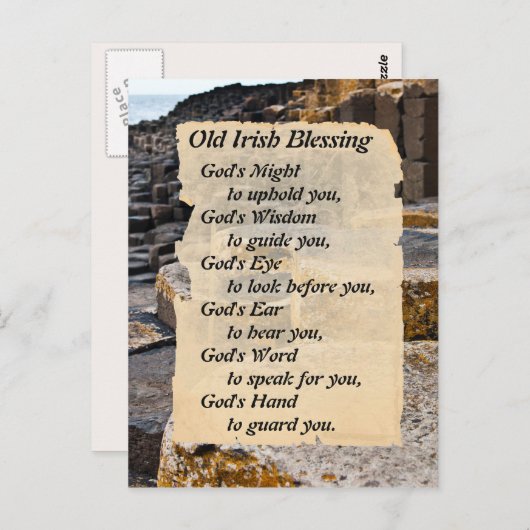 Old Irish Blessing
God's Might
to uphold you,
God's Wisdom
to guide you,
God's Eye
to look before you,
God's Ear
to hear you,
God's Word
to speak for you,
God's Hand
to guard you.
place
zzle